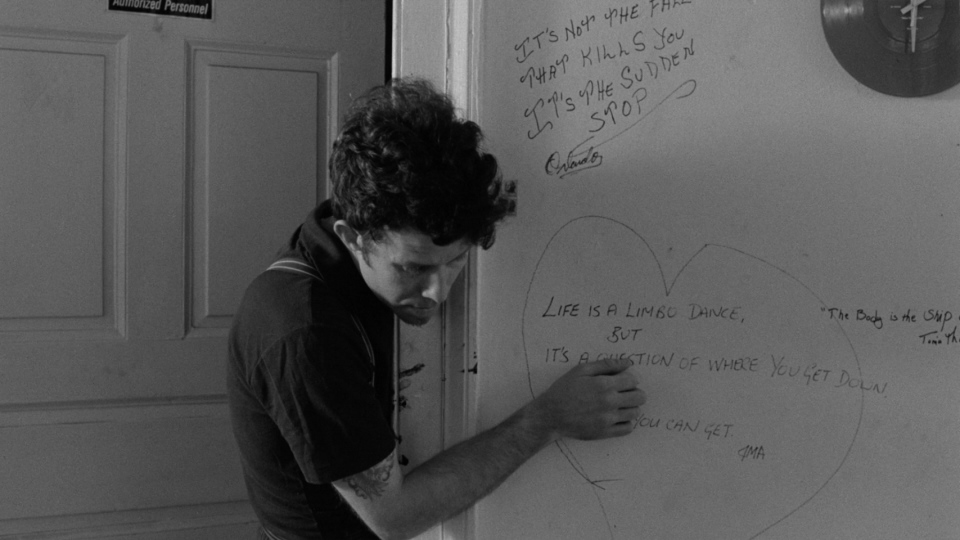 Authorized Personnel
IT'S NOT THE FALL
THAT KILLS YOU
IT'S THE SUDDEN
STOP
Orlando
LIFE IS A LIMBO DANCE,
BUT
IT'S A QUESTION OF WHERE YOU GET DOWN,
YOU CAN GET.
JMA
"The Body is the SHIP
Tom